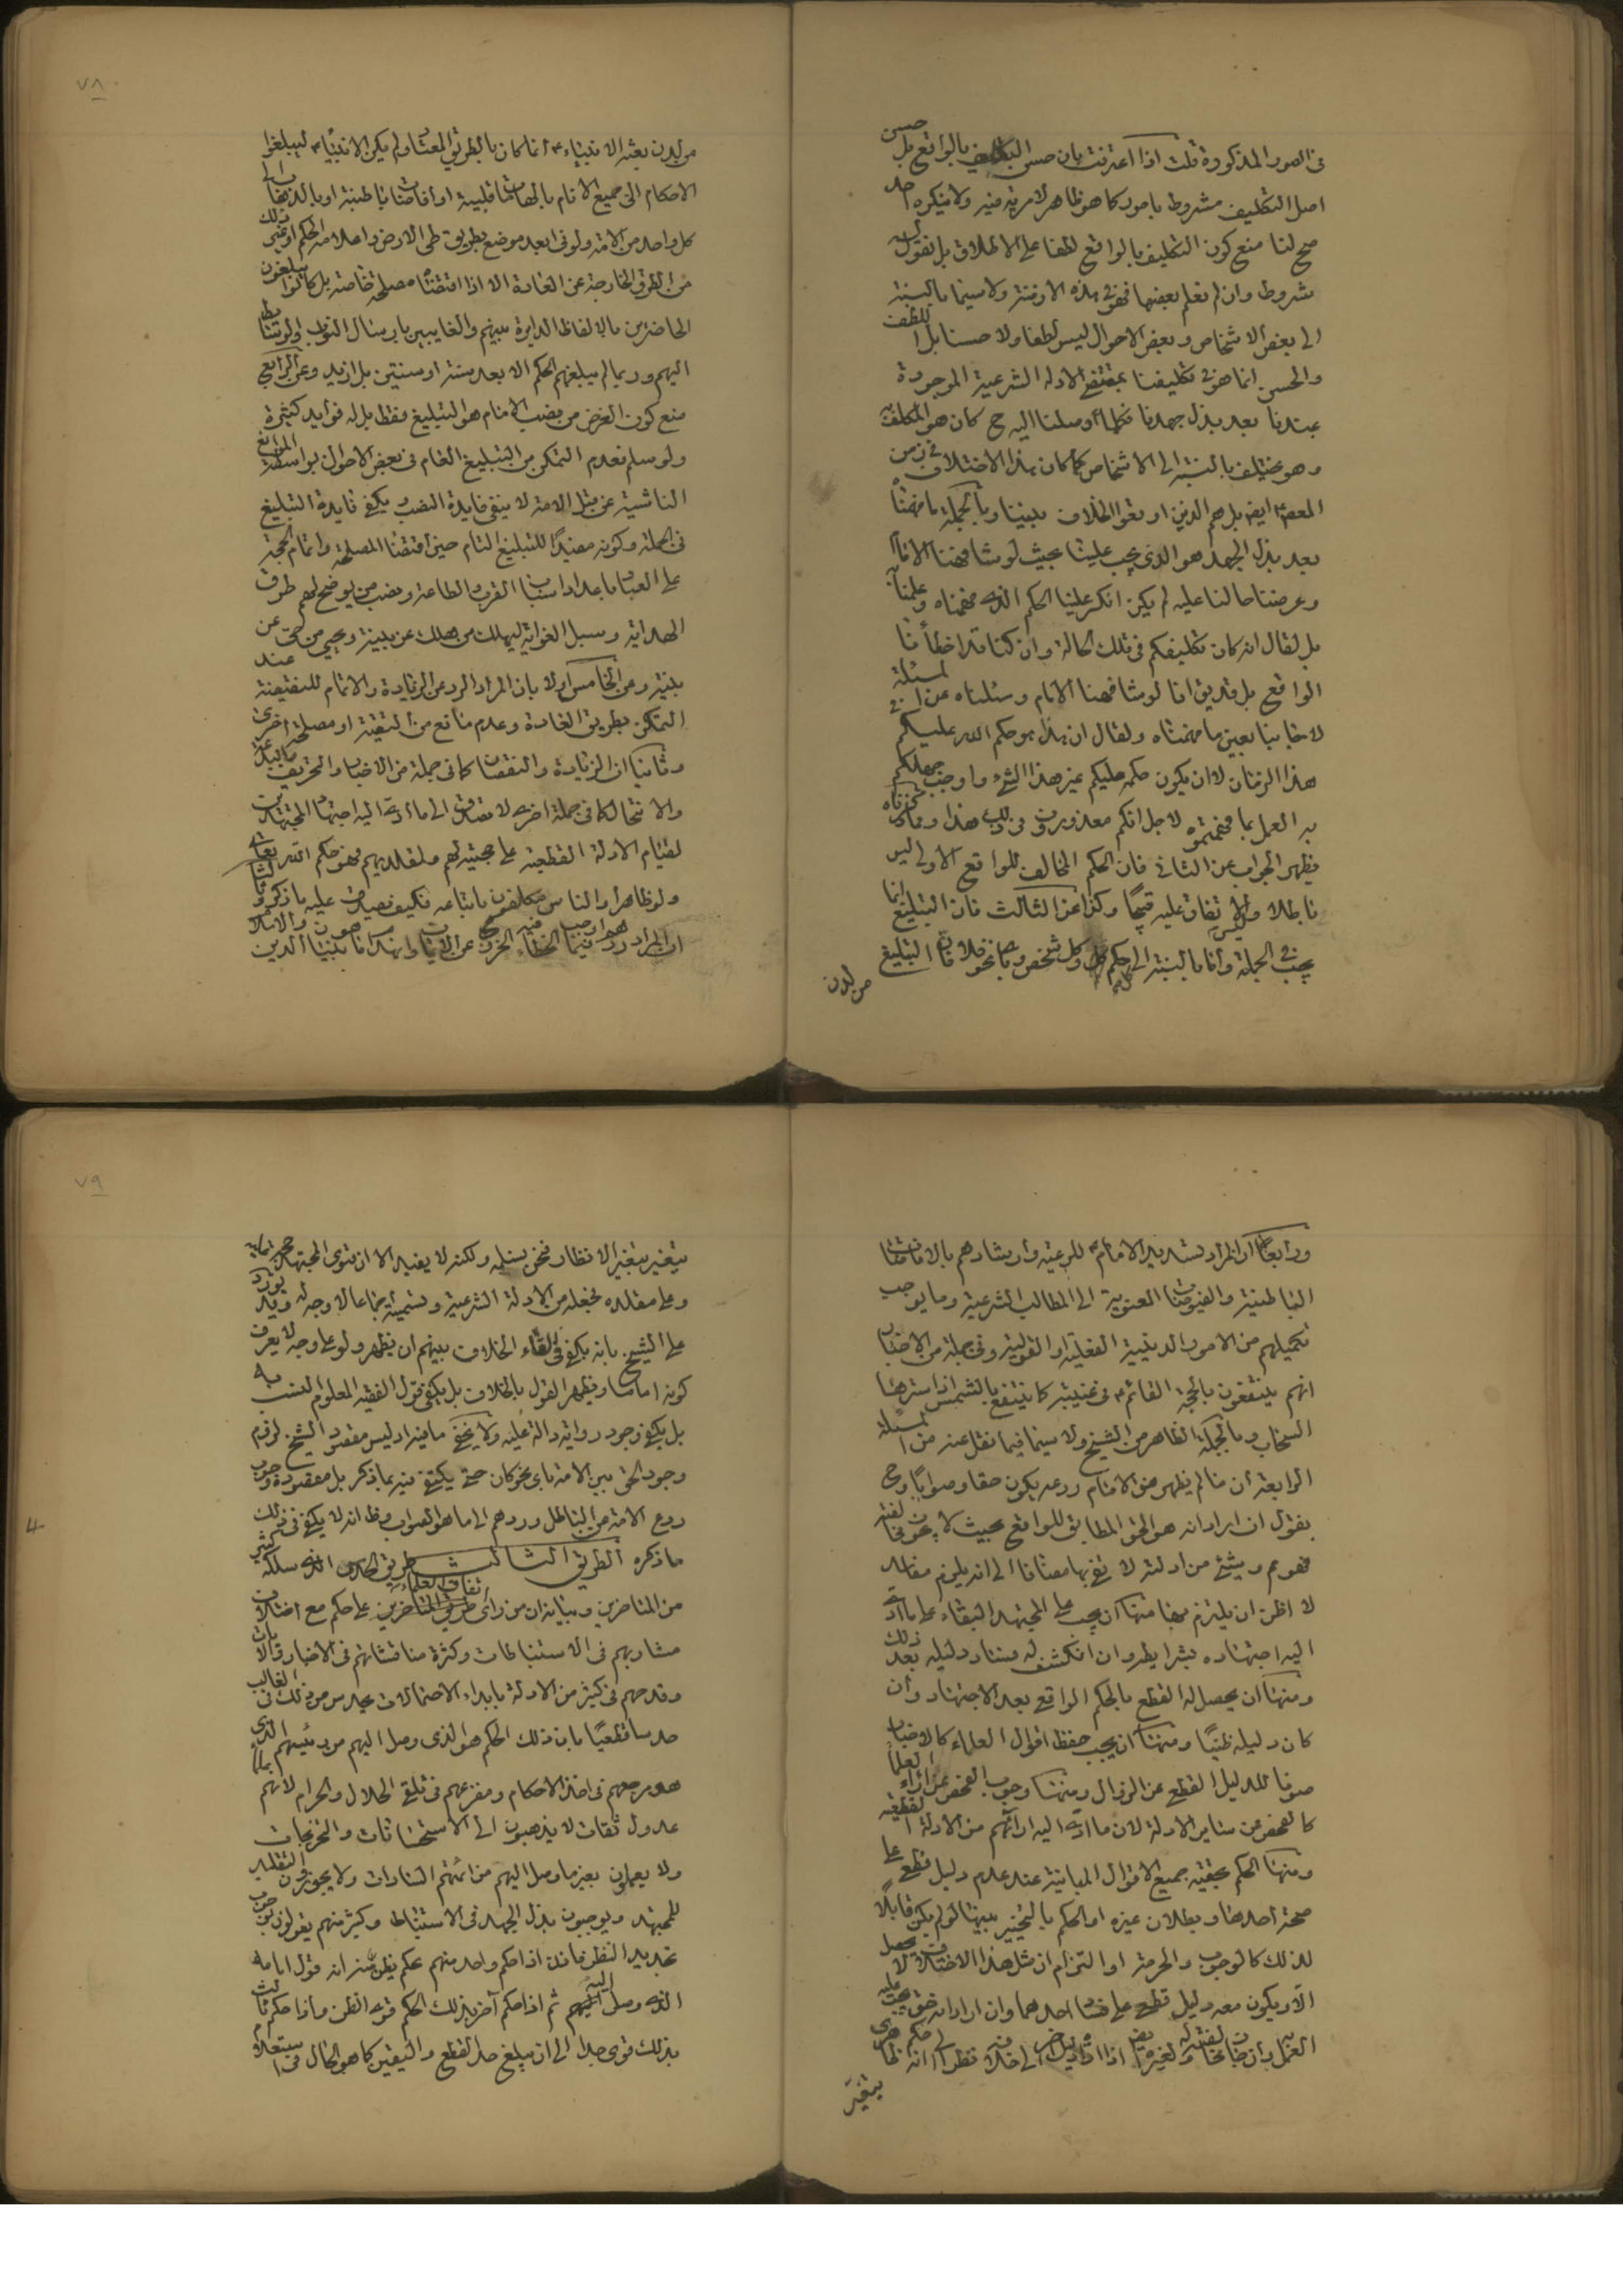 فى الصور المذكورة قلت اذا اعترفت بان حسن التكليف بالواقع بل حسن
اصل التكليف مشروط بامور كما هو ظاهر لا مرية فيه ولا ينكره احد
صح لنا منع كون التكليف بالواقع لطفا على الاطلاق بل نقول انه
مشروط وان لم نعلم بعضها فهو فى هذه الازمنة ولا سيما بالنسبة
الى بعض الاشخاص وبعض الاحوال ليس لطفا ولا حسنا بل اللطف
والحسن انما هو فى تكليفنا بمقتضى الادلة الشرعية الموجودة
عندنا بعد بذل جهدنا فكلما اوصلنا اليه ح كان هو المكلف به
وهو يختلف بالنسبة الى الاشخاص كما كان هذا الاختلاف فى زمن
المعصوم ايض بل هم الذين اوقعوا الخلاف بيننا وبالجملة ما فهمنا
بعد بذل الجهد هو الذى يجب علينا بحيث لو شافهنا الامام
وعرضنا حالنا عليه لم يكن انكر علينا الحكم الذى فهمناه وعلمنا به
بل لقال انه كان تكليفكم فى تلك الحالة وان كنا قد اخطأنا
الواقع بل قد يق انا لو شافهنا الامام وسئلناه عن المسئلة
لاجابنا بعين ما فهمناه ولقال ان هذا هو حكم الله عليكم فى
هذا الزمان لا ان يكون حكمه عليكم غير هذا الشئ واوجب جهلكم
به العمل بما فهمتموه لاجل انكم معذورون فى ذلك هذا ومما ذكرناه
يظهر الجواب عن الثانى فان الحكم المخالف للواقع الاولى ليس
باطلا ولا الاتفاق عليه قبيحا وكذا عن الثالث فان التبليغ انما
يجب فى الجملة واما بالنسبة الى كل حكم وكل شخص وباى نحو فلا فان التبليغ
من لدن
٧٨
من لدن بعثه الانبياء ع انما كان بالطريق المعتاد ولم يكن الانبياء ع ليبلغوا
الاحكام الى جميع الانام بالهامات قلبية او افاضات باطنية او بالذهاب الى
كل واحد من الامة ولو فى ابعد موضع بطريق طى الارض واعلامه الحكم او غير ذلك
من الطرق الخارجة عن العادة الا اذا اقتضتها مصلحة خاصة بل كانوا يبلغون
الحاضرين بالالفاظ الدايرة بينهم والغايبين بارسال النواب ولو بوسايط
اليهم وربما لم يبلغهم الحكم الا بعد سنة او سنتين بل ازيد وعن الرابع
منع كون الغرض من نصب الامام هو التبليغ فقط بل له فوايد كثيرة
ولو سلم فعدم التمكن من التبليغ العام فى بعض الاحوال بواسطة الموانع
الناشية عن قبل الامة لا ينفى فايدة النصب ويكفى فايدة التبليغ
فى الجملة وكونه مفيدا للتبليغ التام حين اقتضاء المصلحة واتمام الحجة
على العباد باعداد اسباب القرب والطاعة ونصب من يوضح لهم طرق
الهداية وسبل الغواية ليهلك من هلك عن بينة ويحيى من حى عن
بينة وعن الخامس اولا بان المراد الرد عن الزيادة والاتمام للنقيصة عند
التمكن بطريق العادة وعدم مانع من التقية او مصلحة اخرى
وثانيا ان الزيادة والنقصان كما فى جملة من الاخبار والتحريف
والانتحال كما فى جملة اخرى لا تصدق الى ما ادى اليه اجتهاد المجتهدين
لقيام الادلة القطعية على حجيته لهم ولمقلديهم فهو حكم الله تعالى
ولو ظاهرا والناس مكلفون باتباعه فكيف يصدق عليه ما ذكر
ان المراد
٧٩
ورابعا ان المراد تسديد الامام ع للرعية وارشادهم بالافاضات
الباطنية والفيوضات المعنوية الى المطالب الشرعية وما يوجب
تكميلهم من الامور الدينية الفعلية او القولية وفى جملة من الاخبار
انهم ينتفعون بالحجة القائم ع فى غيبته كما ينتفع بالشمس اذا سترها
السحاب وبالجملة الظاهر من الشيخ ولا سيما فيما نقل عنه من المسئلة
الرابعة ان ما لم يظهر من الامام ردعه يكون حقا وصوابا وح
نقول ان اراد انه هو الحق المطابق للواقع بحيث لا يجوز مخالفته
فهو مم وشئ من ادلته لا تفى بها مضافا الى انه يلزم مفاسد
لا اظن ان يلتزم بها منها ان يجب على المجتهد البقاء على ما ادى
اليه اجتهاده بشرايطه وان انكشف له فساد دليله بعد ذلك
ومنها ان يحصل له القطع بالحكم الواقع بعد الاجتهاد وان
كان دليله ظنيا ومنها ان يجب حفظ اقوال العلماء كالاخبار
صونا للدليل القطع عن الزوال ومنها وجوب الفحص عن اراء العلماء
كالفحص عن ساير الادلة لان ما ادى اليه ارائهم من الادلة القطعية
ومنها الحكم بحقية جميع الاقوال المباينة عند عدم دليل قطع على
صحة احدها وبطلان غيره او الحكم بالتخيير بينها لو لم يكن قابلا
لذلك كالوجوب والحرمة او التزام ان مثل هذا الاختلاف لا يحصل
الا ويكون معه دليل قطع على فساد احدهما وان اراد انه حق يجب عليه
العمل
يتغير
يتغير بتغير الانظار فنحن نسلمه ولكنه لا يفيد الا ان فتوى المجتهد حجة عليه
وعلى مقلده فجعله من الادلة الشرعية وتسميته اجماعا لا وجه له وقد يورد
على الشيخ بانه يكفى فى القاء الخلاف بينهم ان يظهر ولو على وجه لا يعرف
كونه اماما ويظهر القول بالخلاف بل يكفى قول الفقيه المعلوم النسب به
بل يكفى وجود رواية دالة عليه ولا يخفى ما فيه اذ ليس مقصود الشيخ لزوم
وجود الحق بين الامة باى نحو كان حتى يكتفى فيه بما ذكر بل مقصوده وجوب
ردع الامة من الباطل وردهم الى ما هو الصواب وظ انه لا يكفى فى ذلك
ما ذكره الطريق الثالث طريق الحدس الذى سلكه كثير
من المتاخرين وبيانه ان من راى اتفاق العلماء على حكم مع اختلاف
مشاربهم فى الاستنباطات وكثرة مناقشاتهم فى الاخبار والايات
وقدحهم فى كثير من الادلة بابداء الاحتمالات يحدس من ذلك فى الغالب
حدسا قطعيا بان ذلك الحكم هو الذى وصل اليهم من رئيسهم الذى
هو مرجعهم فى اخذ الاحكام ومفزعهم فى تلقى الحلال والحرام لانهم
عدول ثقات لا يذهبون الى الاستحسانات والتخريجات
ولا يعملون بغير ما وصل اليهم من ائمتهم السادات ولا يجوزون التقليد
للمجتهد ويوجبون بذل الجهد فى الاستنباط وكثير منهم يقولون بوجوب
تجديد النظر فاذا حكم واحد منهم بحكم يظن منه انه قول امامه
الذى وصل اليه ثم اذا حكم آخر بذلك الحكم قوى الظن واذا حكم ثالث
بذلك قوى جدا الى ان يبلغ حد القطع واليقين كما هو الحال فى